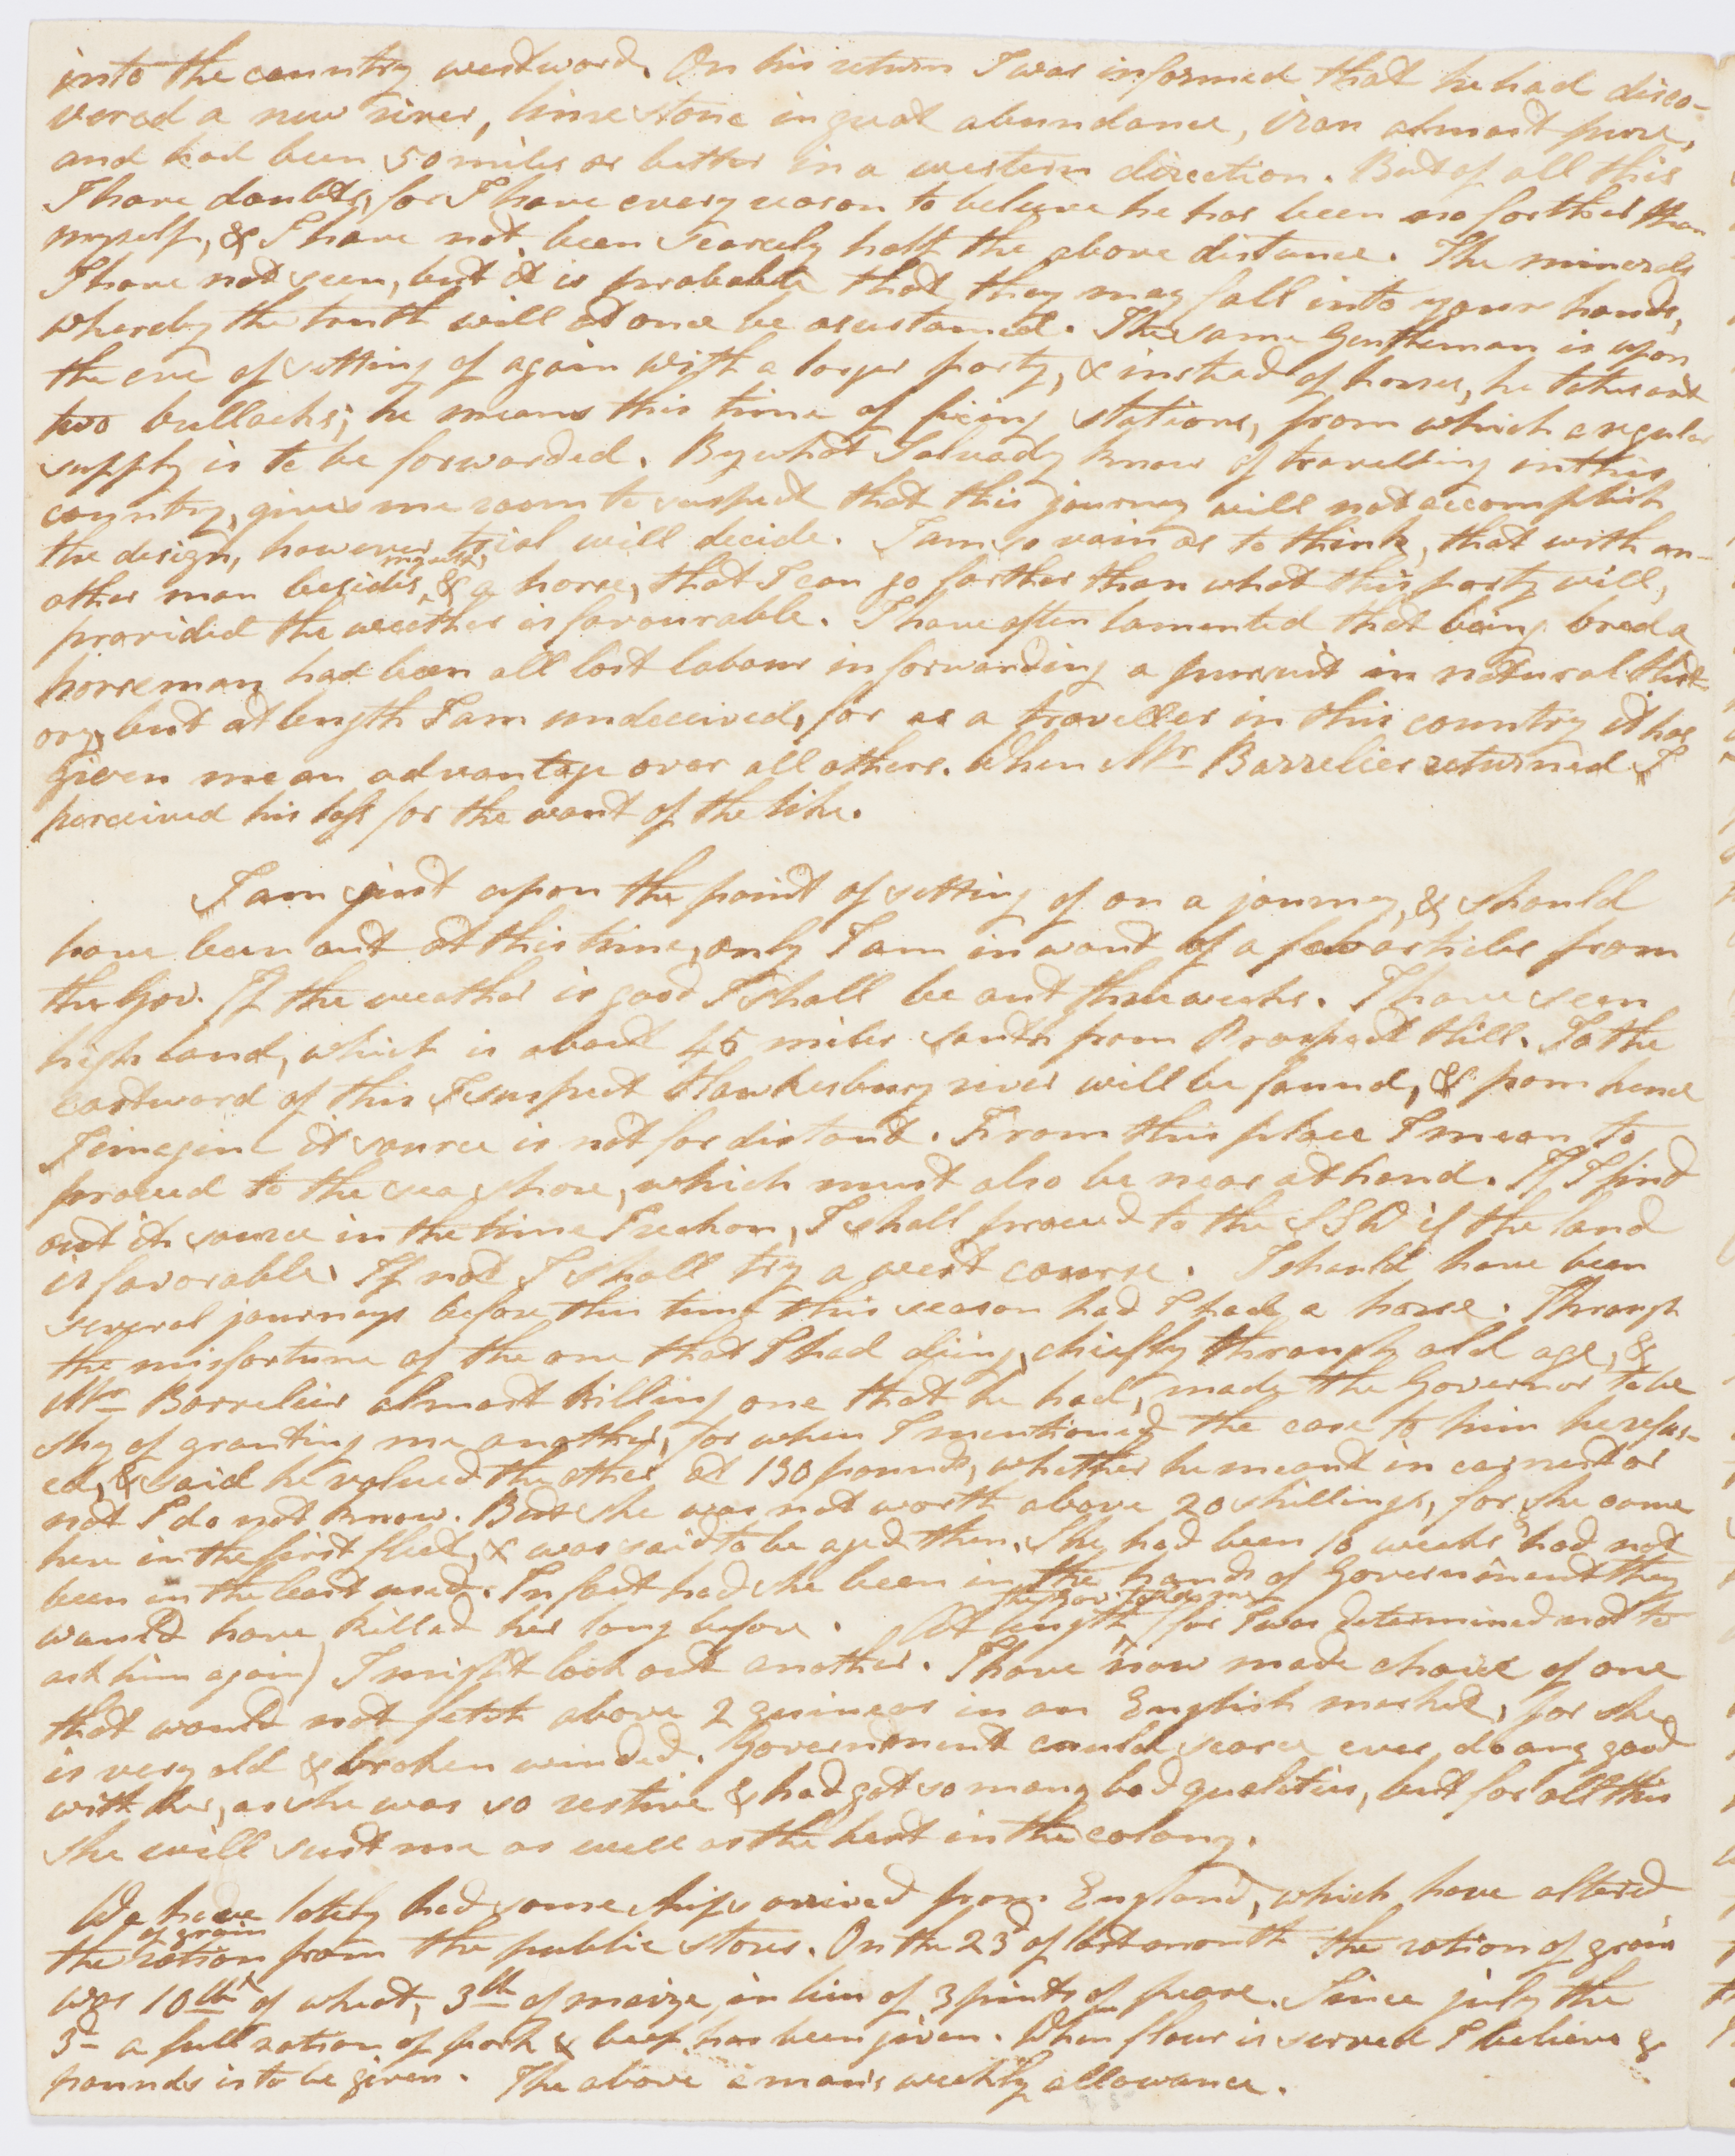 into the country westward. On his return I was informed that he had disco-
vered a new river, lime stone in great abundance, iron almost pure,
and had been 50 miles or better in a western direction. But of all this
I have doubts, for I have every reason to believe he has been no farther than
myself, & I have not been scarcely half the above distance. The minerals
I have not seen, but it is probable that they may fall into your hands,
whereby the truth will at once be asustained. The same Gentleman is upon
the eve of setting of again with a larger party, & instead of horses, he takes out
two bullocks; he means this time of fixing stations, from which a regular
supply is to be forwarded. By what I already know of travelling in this
country, gives me room to suspect that this journey will not accomplish
the design, however trial will decide. I am so vain as to think, that with an-
other man besides myself, & a horse, that I can go farther than what this party will,
provided the weather is favourable. I have often lamented that being bred a
horseman had been all lost labour in forwarding a pursuit in natural Hist-
ory, but at length I am undeceived, for as a traveller in this country it has
given me an advantage over all others. When Mr Barrelier returned I
perceived his loss for the want of the like.
I am just upon the point of setting of on a journey, & should
have been out at this time, only I am in want of a few articles from
the Gov. If the weather is good I shall be out three weeks. I have seen
high land, which is about 45 miles south from Prospect Hill. To the
eastward of this I suspect Hawkesbury river will be found, & from hence
I imagine it source is not far distant. From this place I mean to
proceed to the sea shore, which must also be near at hand. If I find
out it source in the time I reckon, I shall proceed to the SSW if the land
is favorable. If not I shall try a west course. I should have been
several journeys before this time this season had I had a horse. Through
the misfortune of the one that I had diing, chiefly through old age, &
Mr Barrelier almost killing one that he had, made the Governor to be
shy of granting me another, for when I mentioned the case to him he refus-
ed, & said he valued the other at 130 pounds, whether he meant in earnest or
not I do not know. But she was not worth above 20 shillings, for she came
here in the first fleet, & was said to be aged then. She had been 10 weeks had not
been in the least used. In fact had she been in the hands of Government they
would have killed her long before. At length the Gov. told me (for I was determined not to
ask him again) I might look out another. I have now made choice of one
that would not fetch above 2 guineas in an English market, for she
is very old & broken winded. Government could scarce ever do any good
with her, as she was so restive & had got so many bad qualities, but for all this
she will suit me as well as the best in the colony.
We have lately had some ships arrived from England, which have altered
the ration of grain from the public stores. On the 23d of last month the ration of grain
was 10 lb of wheat, 3 lb of maize, in lieu of 3 pints of pease. Since july the
3d a full ration of pork & beef has been given. When flour is served I believe 8
pounds is to be given. The above a man's weekly allowance.